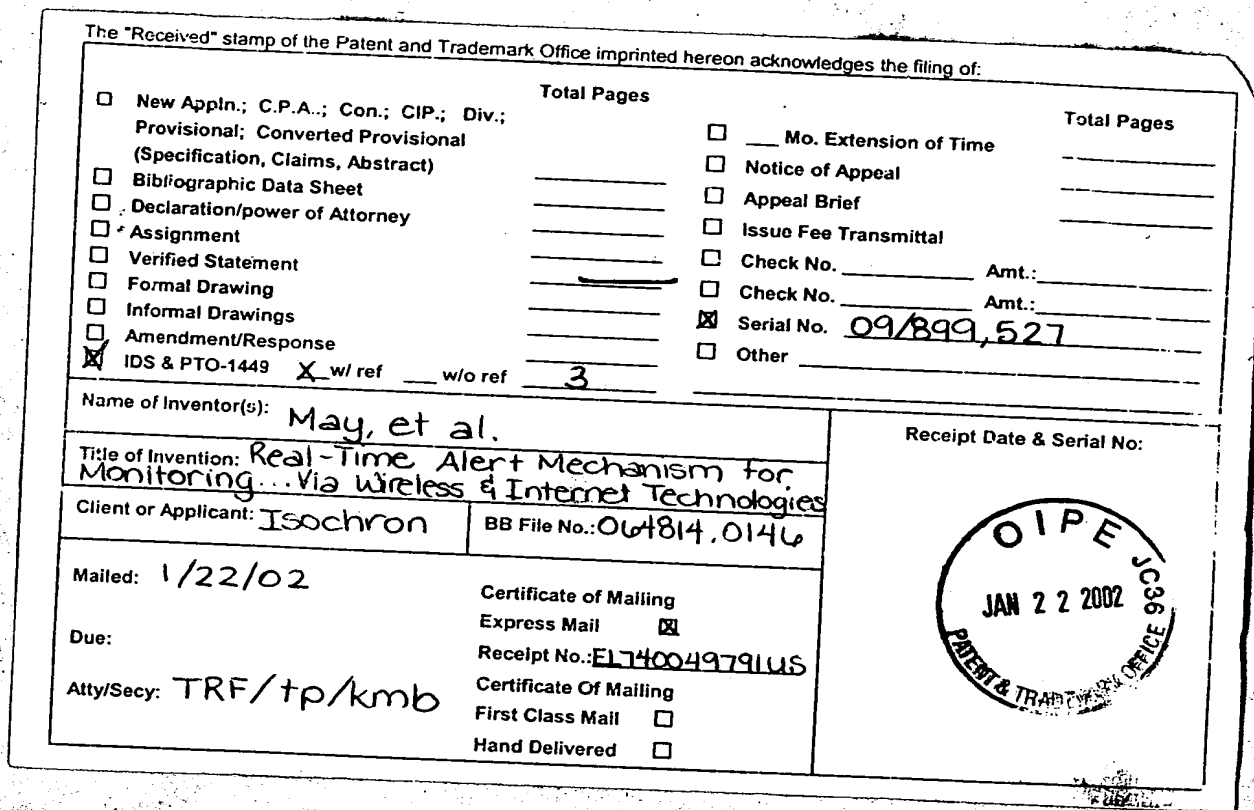 The "Received" stamp of the Patent and Trademark Office imprinted hereon acknowledges the filing of:
Total Pages
☐ New Appln.; C.P.A..; Con.; CIP.; Div.;
Provisional; Converted Provisional
(Specification, Claims, Abstract)
☐ Bibliographic Data Sheet
☐ Declaration/power of Attorney
☐ Assignment
☐ Verified Statement
☐ Formal Drawing
☐ Informal Drawings
☐ Amendment/Response
☒ IDS & PTO-1449 X w/ ref ___ w/o ref 3
Total Pages
☐ ___ Mo. Extension of Time
☐ Notice of Appeal
☐ Appeal Brief
☐ Issue Fee Transmittal
☐ Check No. ___ Amt.:
☐ Check No. ___ Amt.:
☒ Serial No. 09/899,527
☐ Other
Name of Inventor(s): May, et al.
Title of Invention: Real-Time Alert Mechanism for
Monitoring...Via Wireless & Internet Technologies
Client or Applicant: Isochron
BB File No.: 064814.0146
Mailed: 1/22/02
Due:
Atty/Secy: TRF/tp/kmb
Certificate of Mailing
Express Mail ☒
Receipt No.: EL740049791US
Certificate Of Mailing
First Class Mail ☐
Hand Delivered ☐
Receipt Date & Serial No:
OIPE JC36
JAN 22 2002
PATENT & TRADEMARK OFFICE